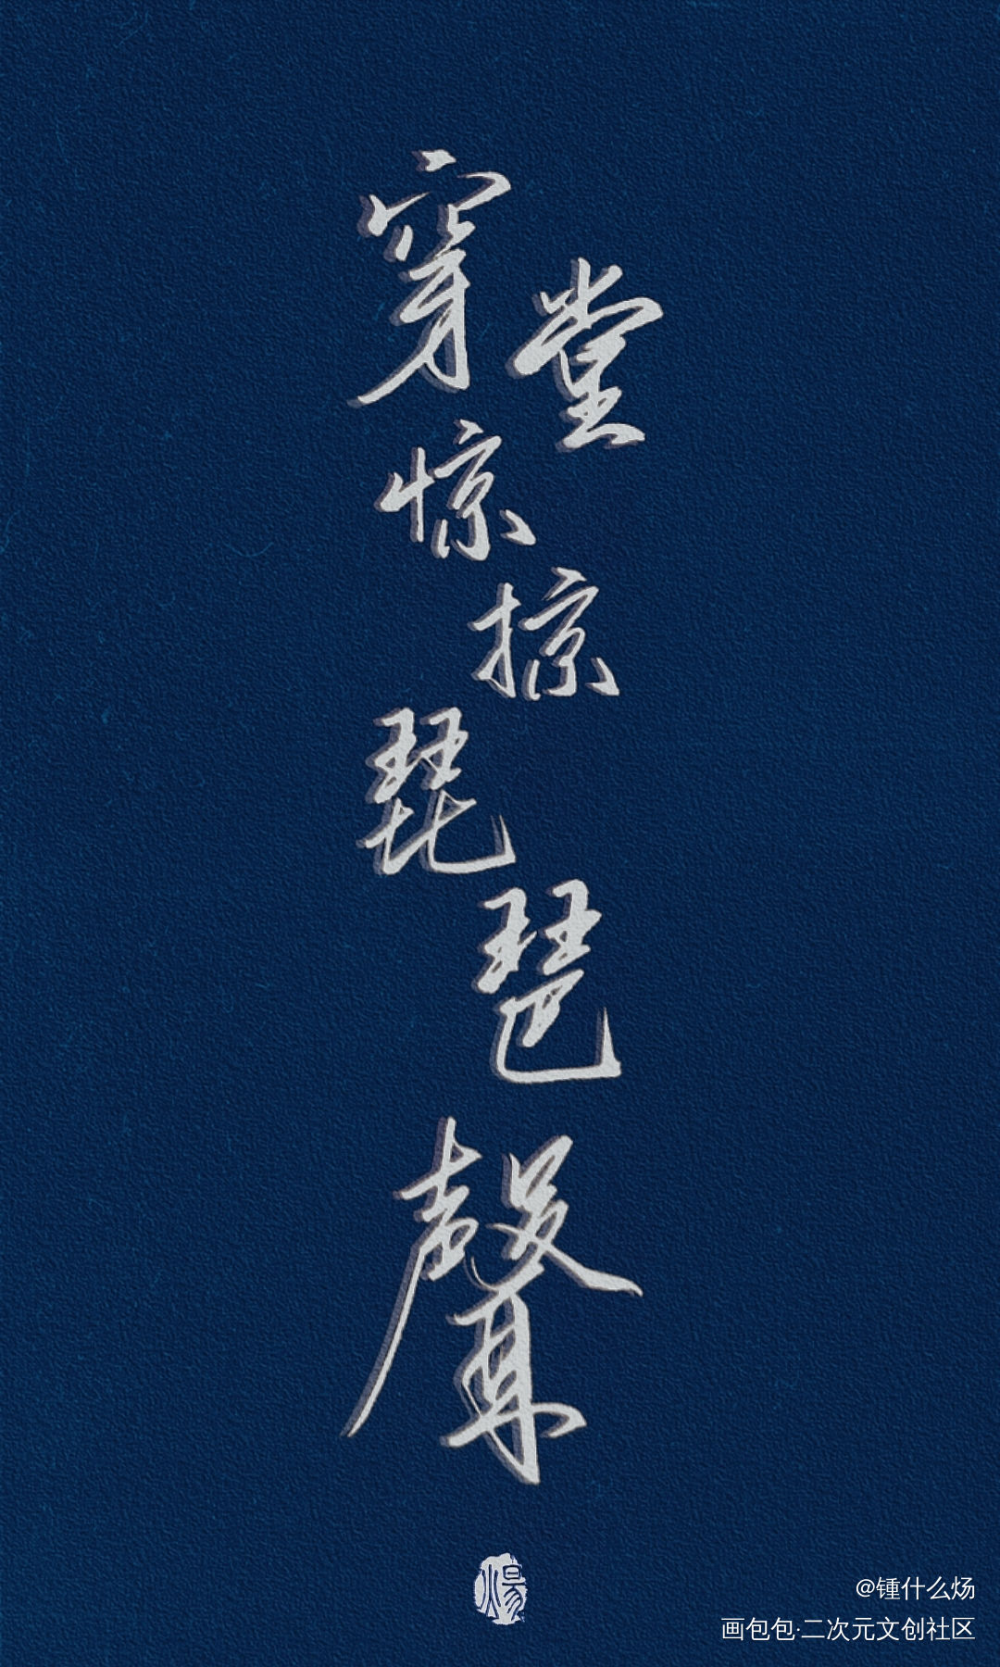 穿堂惊掠琵琶聲
煬
@锺什么炀
画包包·二次元文创社区